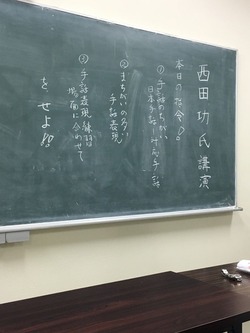 西田功氏講演
本日の指令!!
①手話のちがい
日本手話―日本語手話
②まちがいのない
手話表現
③手話表現練習
場面に合わせて
を、せよ!!